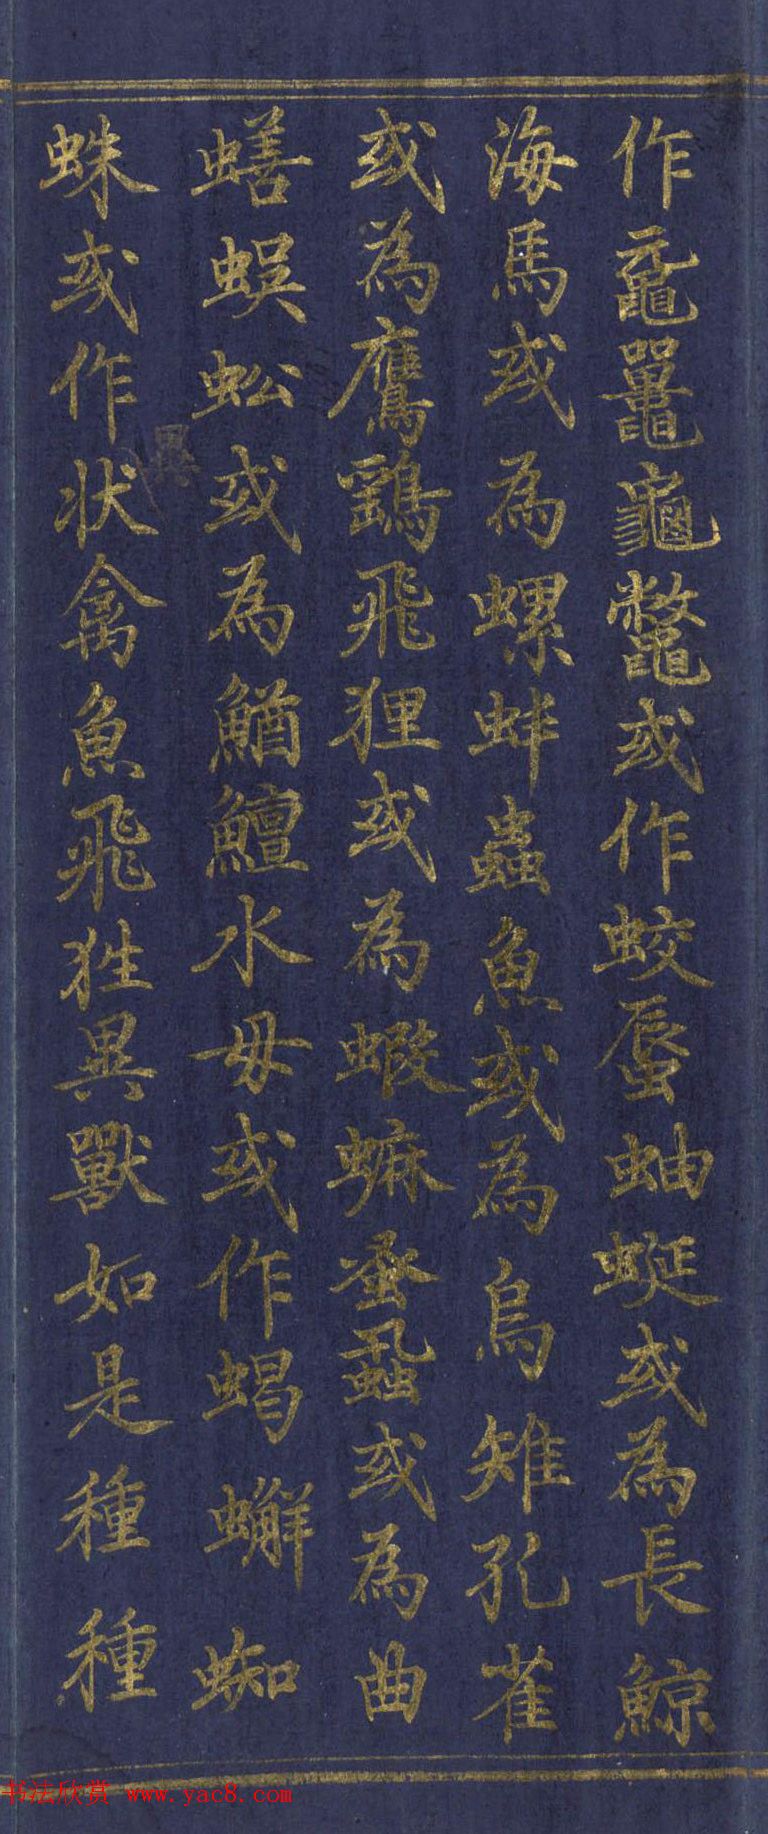 作黿鼉龜鼈或作蛟蜃蚰蜒或為長鯨
海馬或為螺蚌蟲魚或為烏雉孔雀
或為鷹鷂飛狸或為蝦蟆蚤蝨或為曲
蟮蜈蚣或為鰌鱣水毋或作蝎蠏蜘
蛛或作状禽魚飛狌異獸如是種種
異
书法欣赏 www.yac8.com